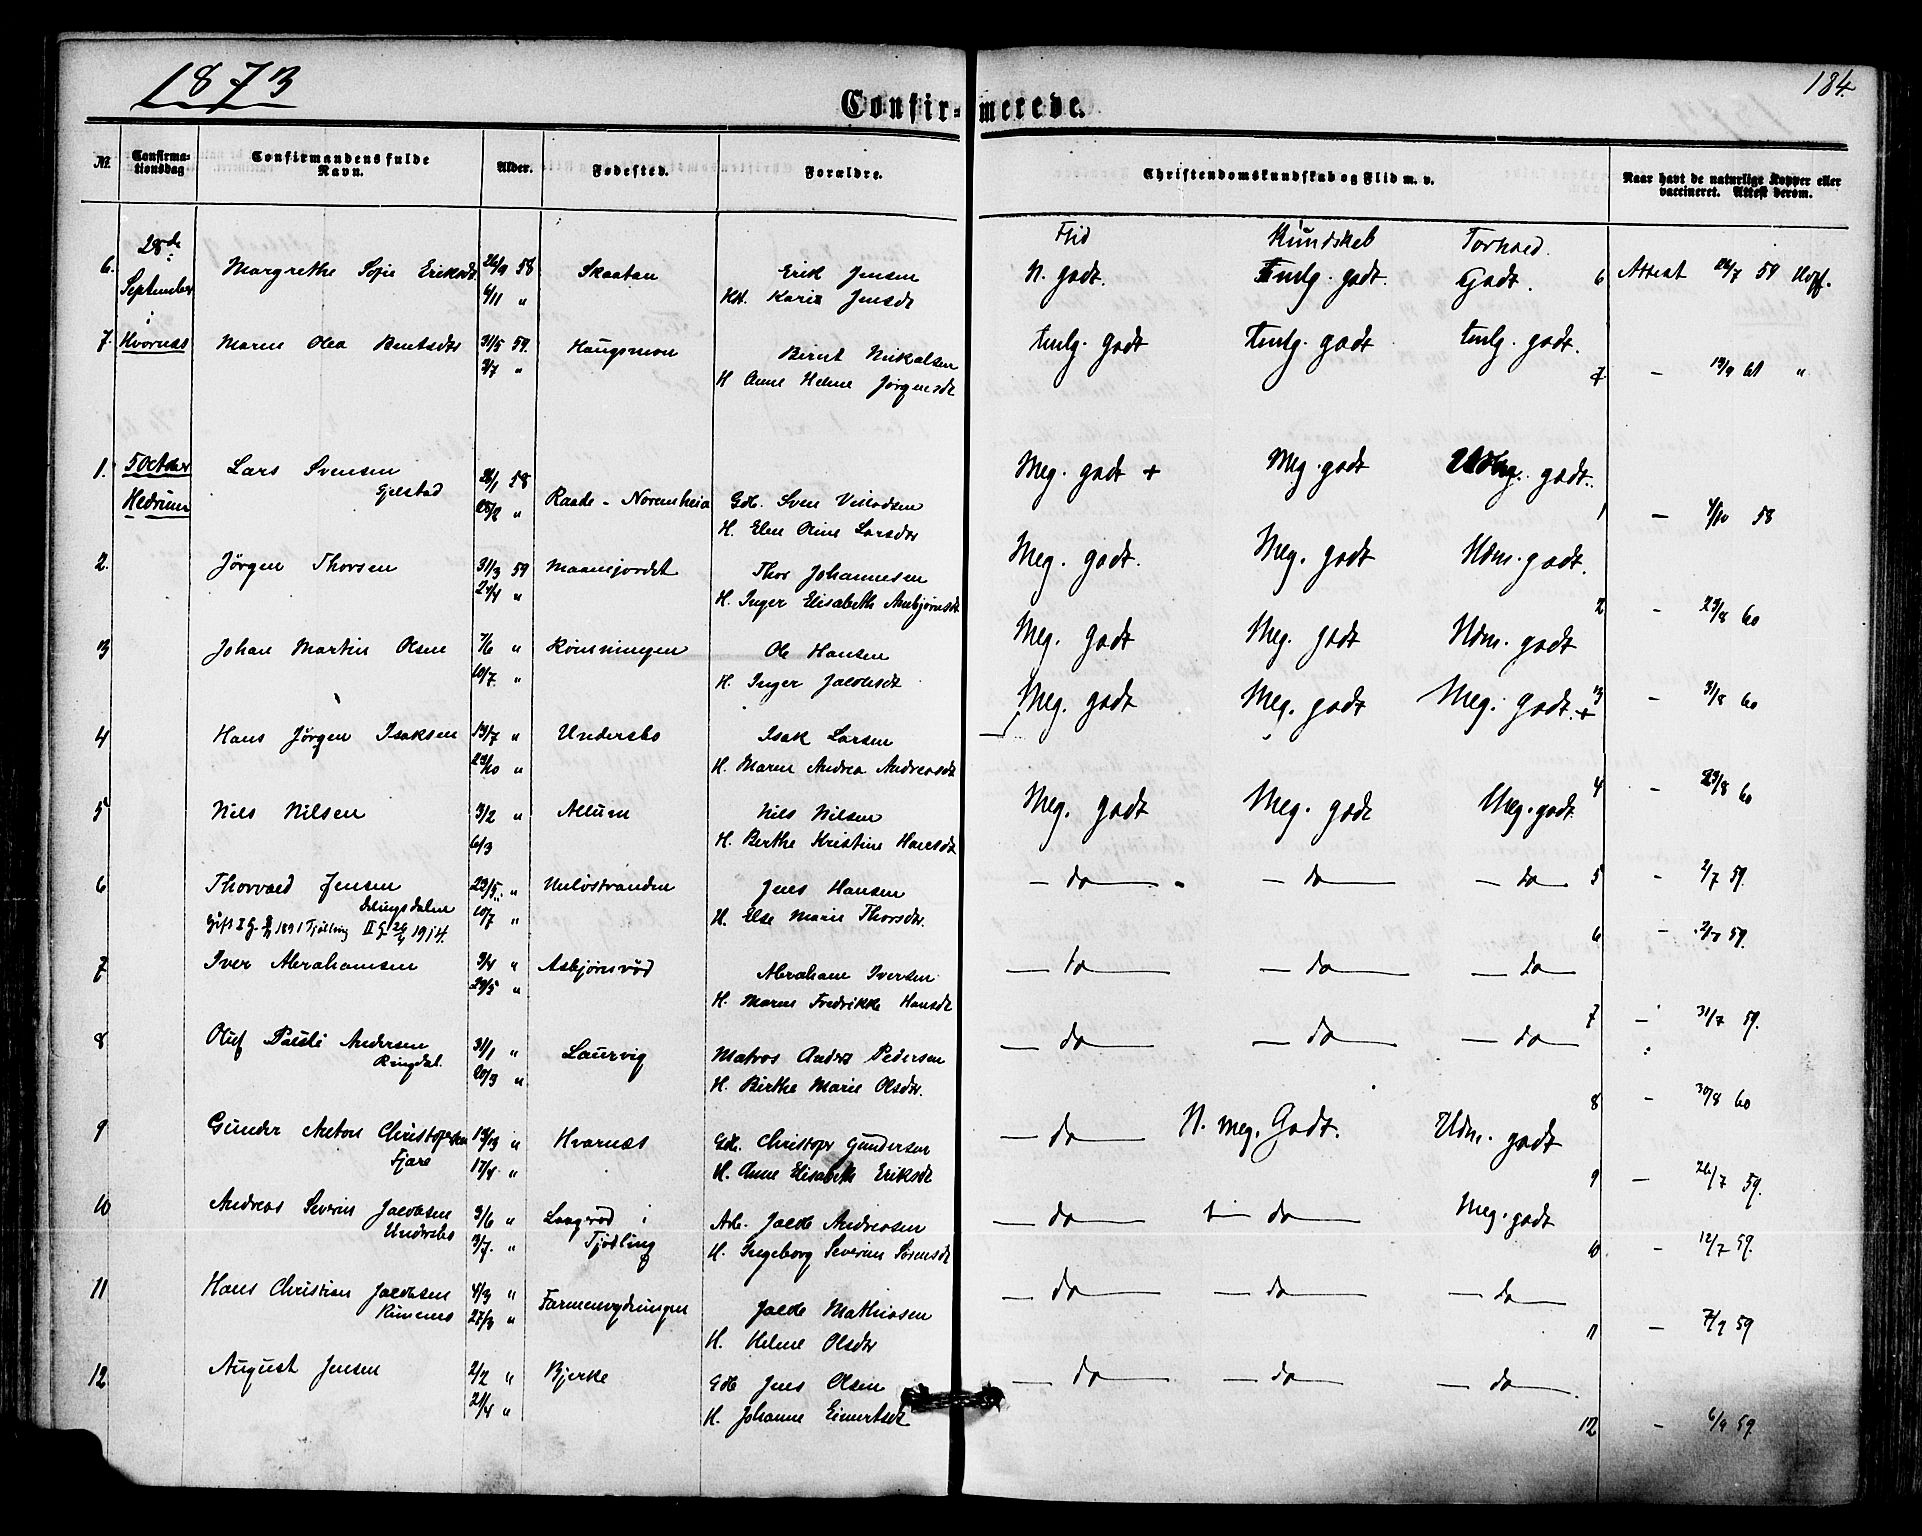 1873
184.
Confir-merede.
Nr. Confirma-tionsdag Confirmandens fulde Navn. Alder. Fødested. Forældre. Christendomskundskab og Flid m. v. Naar havt de naturlige Kopper eller vaccineret. Attest derom.
Flid Kundskab Forhold.
6. 28de September Margrethe Sofie Eriksdt 26/9 58 Skaatan Erik Jensen N. godt. Tmlg. godt. Godt. 6 Attest 24/7 59 Hoff.
6/11 " Karie Jensdt
7. Kvarnes Maren Olea Berntsdtr 31/5 59. Haugsmoen Bernt Nikolsen tmlg. godt tmlg. godt tmlg. godt. 7 - 19/9 61 "
2/7 " H Anne Helene Jørgensdt
1. 5 October Hedrum Lars Svensen Gjelstad 28/1 58 Raade - Noremsheia Gdb. Sven Villadsen Meg. godt + Meg. godt godt. 1 - 4/10 58
" H. Elen Oline Larsdtr
2. Jørgen Thorsen 31/3 59 Maanejordet Thor Johannesen Meg. godt. Meg. godt Udm. godt. 2 - 29/8 60
24/4 " H. Inger Elisabeth Ambjørnsdt
3 Johan Martin Olsen 7/6 " Rønningen Ole Hansen Meg. godt Meg. godt Udm. godt 3 - 31/8 60
10/7. " H. Inger Jacobsdt
4 Hans Jørgen Isaksen 19/7 " Undersbo Isak Larsen Meg. godt Meg. godt Meg. godt. + 4 - 29/8 60
29/10 " H. Maren Andrea Andreasdt
5 Nils Nilsen 3/2 " Allum Nils Nilsen Meg. godt Meg. godt Meg. godt 5 - 2/7 59.
6/3 H. Berthe Kristine Hansdt
6 Thorvald Jensen 22/5. " Unløstranden Jens Hansen - do - - do - - do 6 - 59.
10/7 " H. Else Marie Thorsdtr.
Gift I G. 1891 Tjølling II G. 1914.
7 Iver Abrahamsen 3/4 " Asbjørnrød Abraham Iversen - do - - do - - do 7 - 31/7 59.
29/5 " H. Maren Fredrikke Hansdt
8 Oluf Pauli Andersen Ringdal. 31/1 " Laurvig Matros Anders Pedersen - do - - do - - do 8 30/8 60
20/3 " H. Birthe Marie Olsdtr.
9 Gunder Anton Christophersen Fjære 13/3 " Hvarnes Gdb. Christoph Gundersen - do - N. meg. Godt. Udm. godt 9 - 26/7 59.
17/4 " H. Anne Elisabeth Eriksdt
10 Andreas Severin Jacobsen Undersbo 3/6 " Laagrød i Tjølling Arb. Jakob Andreasen - do - - do - Meg. godt 10 - 12/7 59.
3/7. " H. Ingeborg Severine Sørensdt
11 Hans Christian Jacobsen 4/3 " Farmenrydningen Jakob Mathiasen - do - - do - - do 11 - 7/9 59
27/3 " H. Helene Olsdtr
12 August Jensen 2/2 " Bjerke Gdb Jens Olsen - do - - do - - do - 12 - 6/9 59.
21/4 " H. Johanne Einertsdt